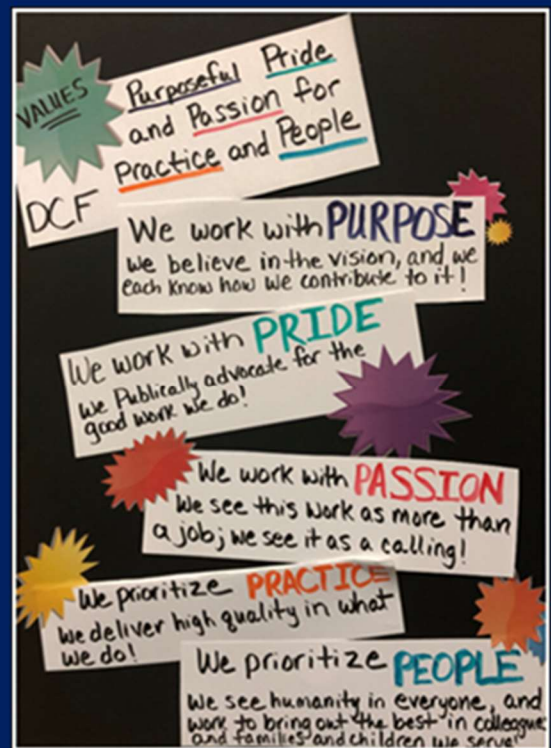 VALUES
Purposeful Pride
and Passion for
Practice and People
DCF
We work with PURPOSE
we believe in the vision, and we
each know how we contribute to it!
We work with PRIDE
we Publically advocate for the
good work we do!
We work with PASSION
We see this work as more than
a job; we see it as a calling!
We prioritize PRACTICE
we deliver high quality in what
we do!
We prioritize PEOPLE
we see humanity in everyone, and
work to bring out the best in colleagues
and families and children we serve!